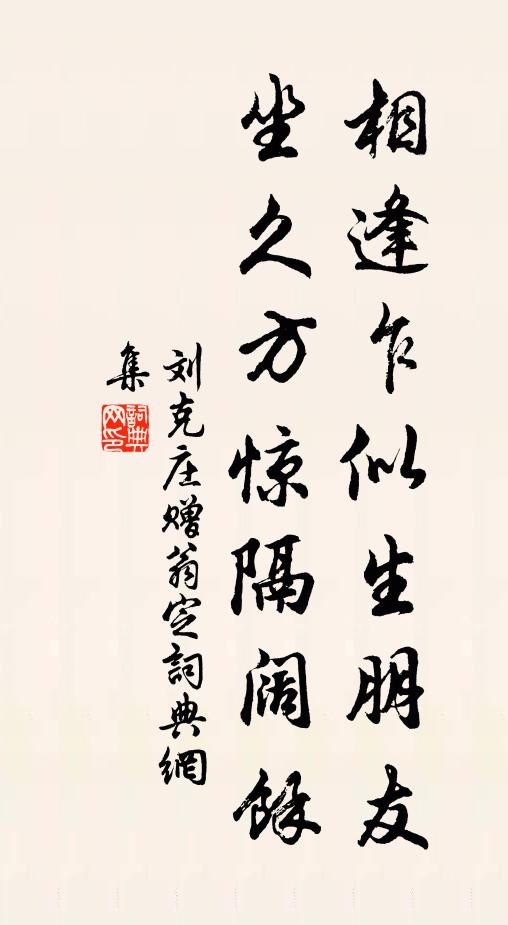 相逢乍似生朋友
坐久方惊隔阔馀
刘克庄赠翁定詞典網
集
詞典
网印